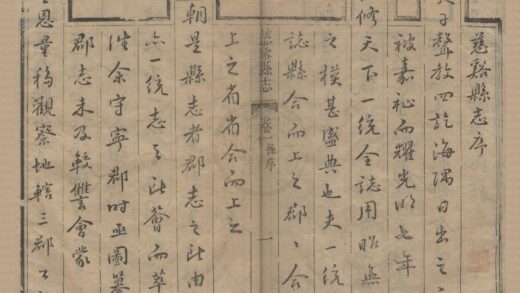 慈谿縣志序
子聲教四訖海隅日出之
被嘉祉而耀光明七年
修天下一統全誌用昭無
之模甚盛典也夫一統
誌縣合而上之郡郡合
慈谿縣志 卷一孫序 一
上之省省合而上之
朝是縣志者郡志之所由
亦一統志之所薈而萃
余守寧郡時亟圖纂
郡志未及較讐會蒙
恩量移觀察地轄三郡